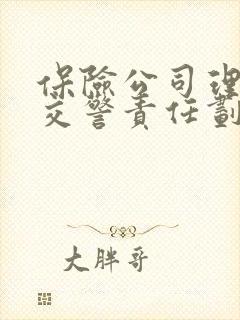 保險公司理
交警責任劃
大胖哥